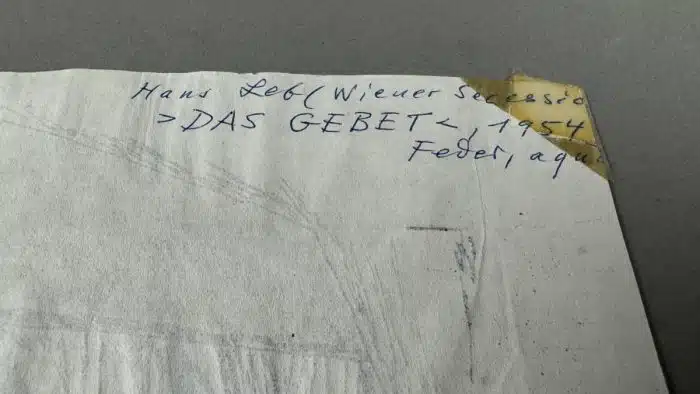 Hans Leb (Wiener Secessio
>DAS GEBET<, 1954
Feder, aqu